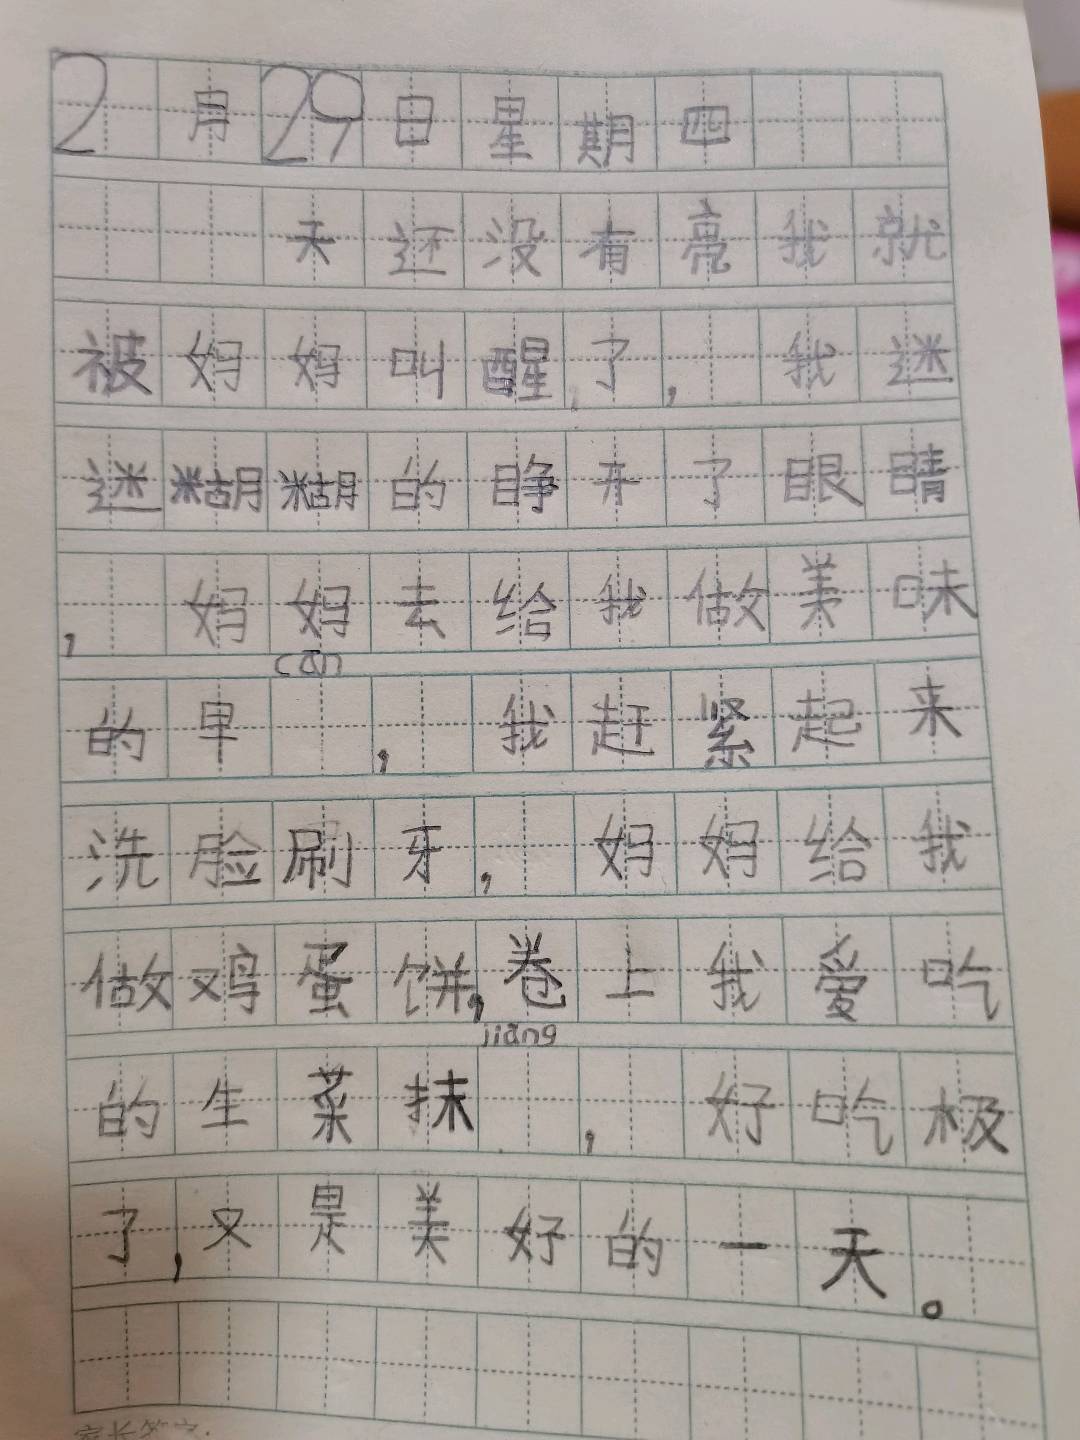 2月29日星期四
天还没有亮我就
被妈妈叫醒了，我迷
迷糊糊的睁开了眼睛
，妈妈去给我做美味
cān
的早，我赶紧起来
洗脸刷牙，妈妈给我
做鸡蛋饼，卷上我爱吃
jiāng
的生菜抹，好吃极
了，又是美好的一天。
家长签字：